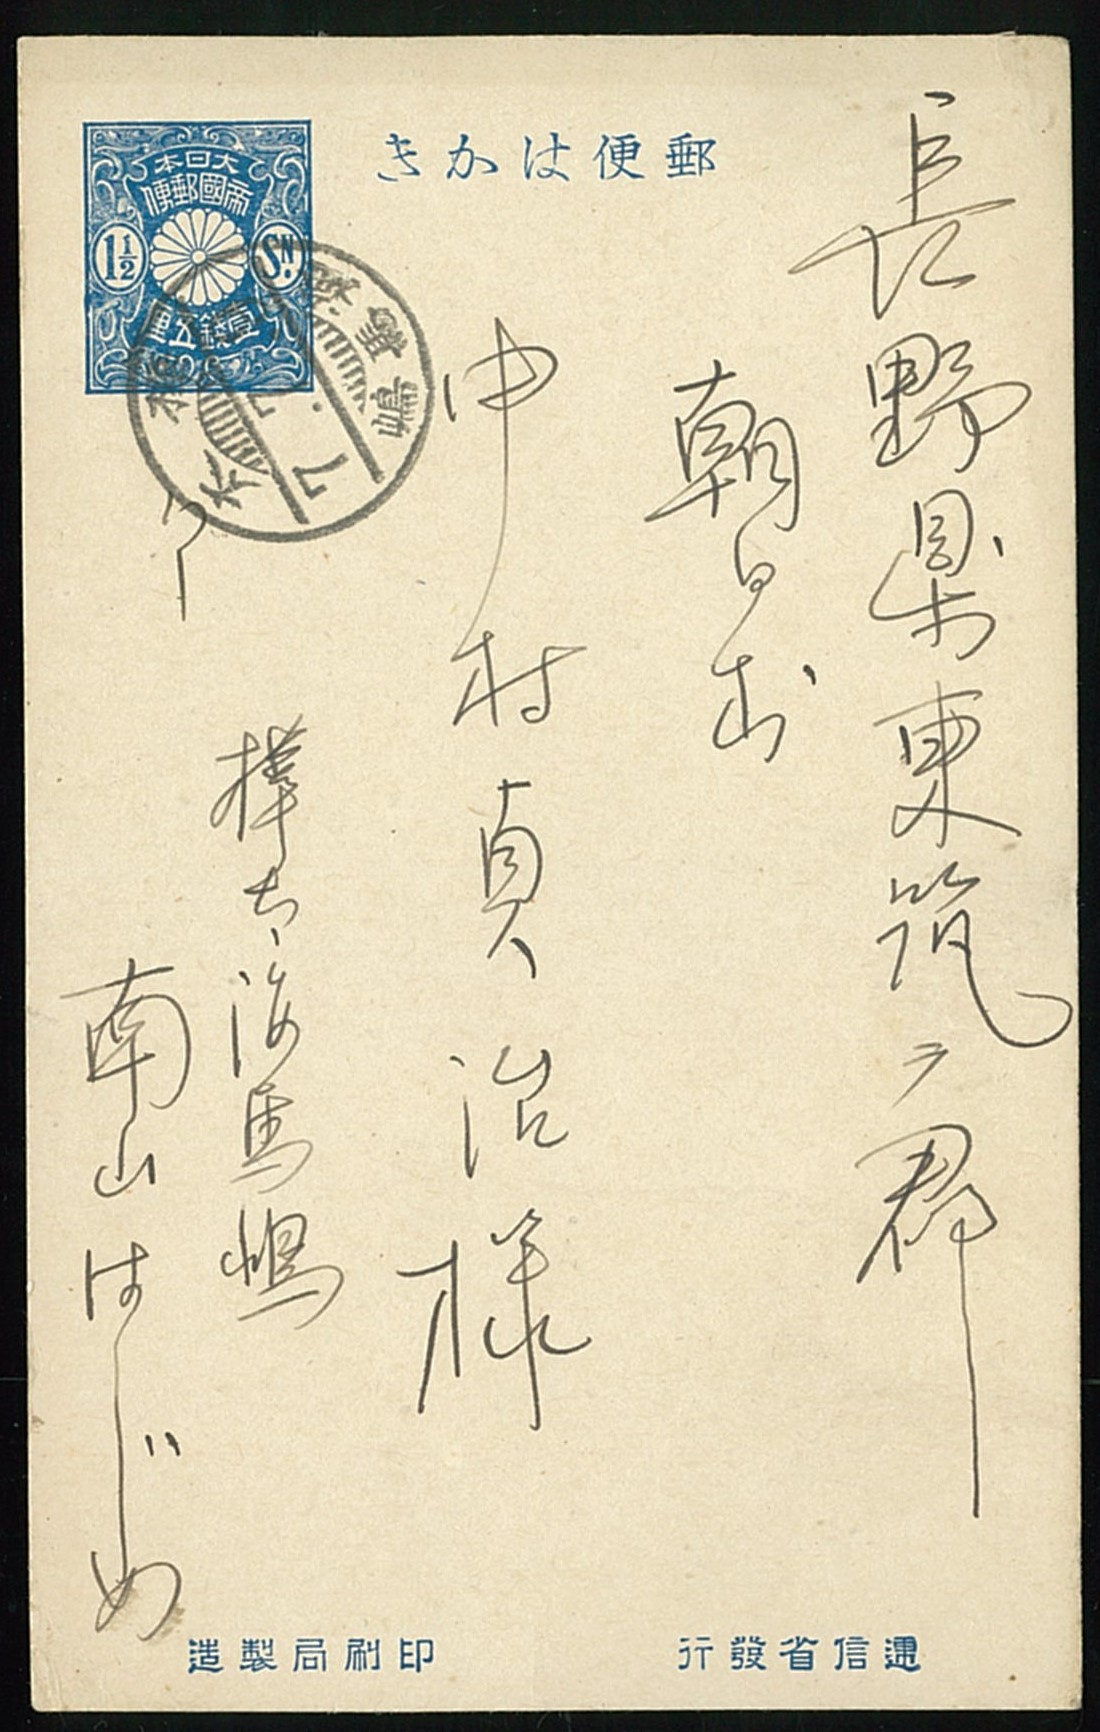 郵便はかき
大日本
帝國郵便
1½
Sn.
壹錢五厘
長野県東筑广郡
朝日村
中村貞治様
樺太海馬嶋
南山はじめ
遞信省發行
印刷局製造